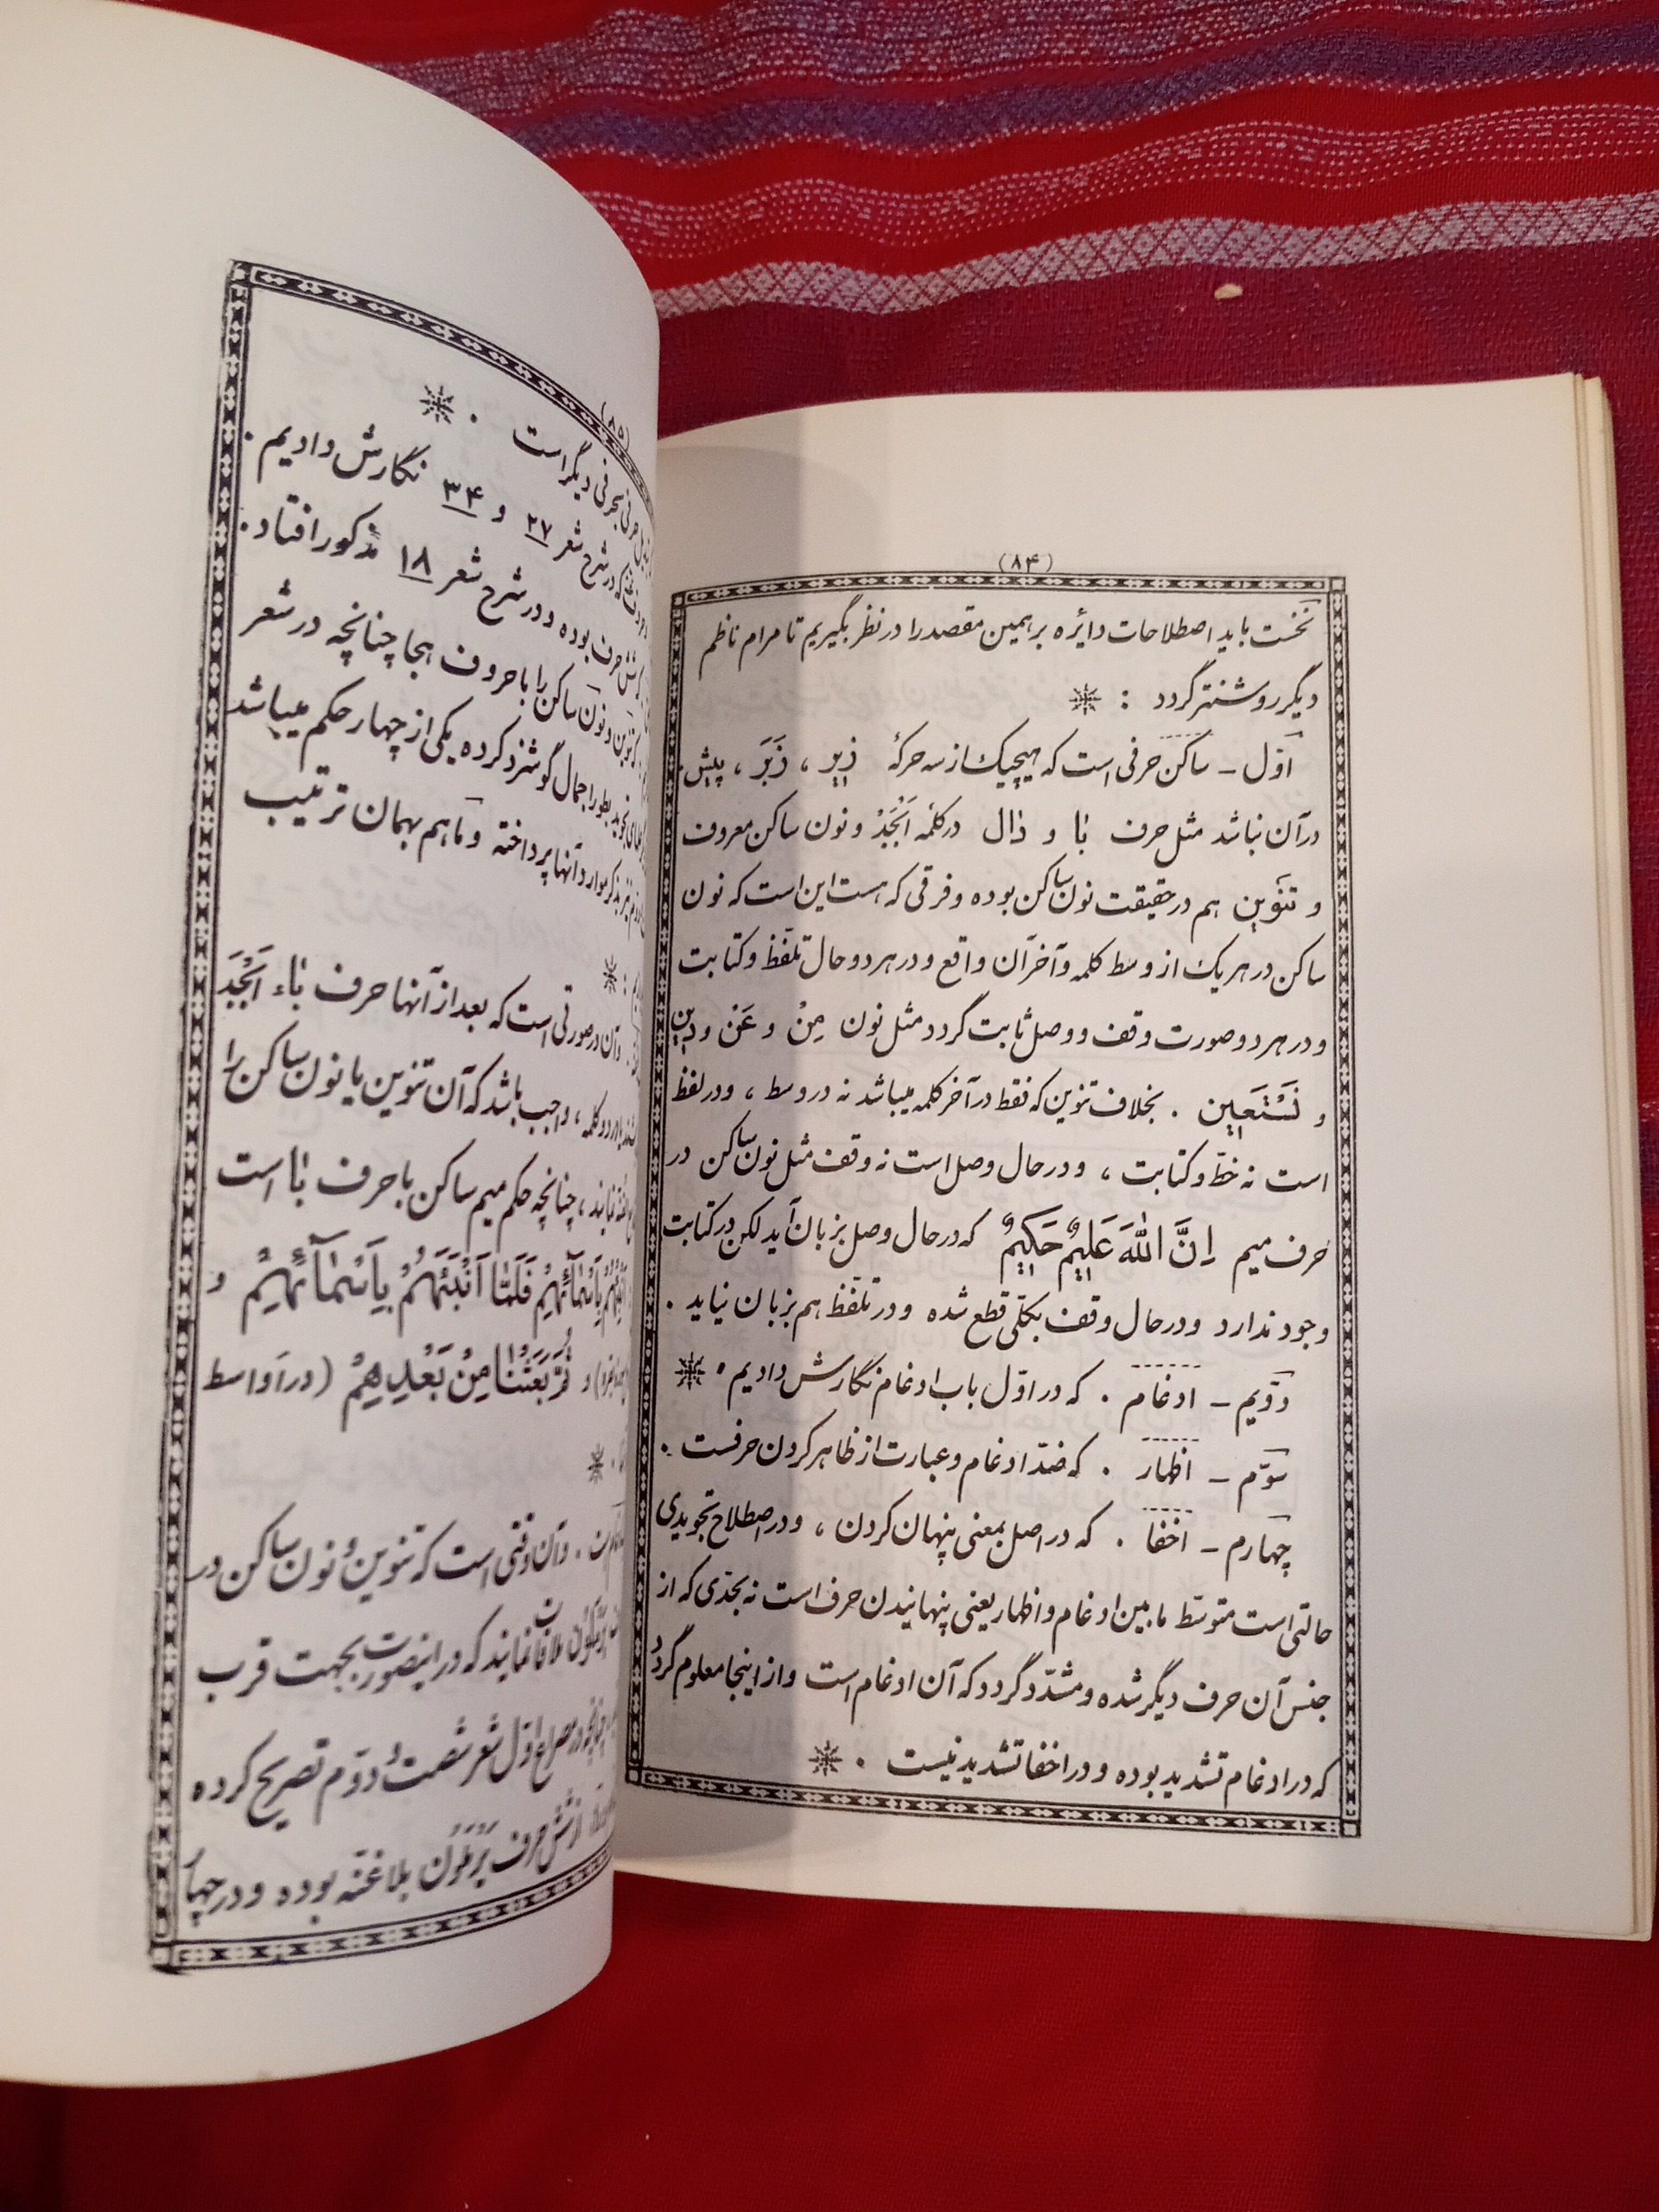 (۸۴)
نخست باید اصطلاحات دایره بر همین مقصد را در نظر بگیریم تا مرام ناظم
دیگر روشنتر گردد :
اوّل - ساکن حرفی است که هیچیک از سه حرکهٔ زیر ، زَبَر ، پیش
در آن نباشد مثل حرف با و ذال در کلمه اَبْجَدْ و نون ساکن معروف
و تنوین هم در حقیقت نون ساکن بوده و فرقی که هست این است که نون
ساکن در هر یک از وسط کلمه و آخر آن واقع و در هر دو حال تلفّظ و کتابت
و در هر دو صورت وقف و وصل ثابت گردد مثل نون مِنْ و عَنْ و دین
و نَسْتَعین . بخلاف تنوین که فقط در آخر کلمه میباشد نه در وسط ، و در لفظ
است نه خطّ و کتابت ، و در حال وصل است نه وقف مثل نون ساکن در
حرف میم اِنَّ اللهَ عَلیمٌ حَکیمٌ که در حال وصل بزبان آید لکن در کتابت
وجود ندارد و در حال وقف بکلّی قطع شده و در تلفّظ هم بزبان نیاید .
دوّیم - ادغام . که در اوّل باب ادغام نگارش دادیم .
سوّم - اظهار . که ضدّ ادغام و عبارت از ظاهر کردن حرفست .
چهارم - اخفا . که در اصل بمعنی پنهان کردن ، و در اصطلاح تجویدی
حالتی است متوسّط مابین ادغام و اظهار یعنی پنهانیدن حرف است نه بحدّی که از
جنس آن حرف دیگر شده و مشدّد گردد که آن ادغام است و از اینجا معلوم گردد
که در ادغام تشدید بوده و در اخفا تشدید نیست .
(۸۵)
حرفی بحرفی دیگر است .
که در شرح شعر ۲۷ و ۳۴ نگارش دادیم .
حرف بوده و در شرح شعر ۱۸ مذکور افتاد .
که تنوین و نون ساکن را با حروف هجا چنانچه در شعر
بطور اجمال گوشزد کرده یکی از چهار حکم میباشد
بذکر موارد آنها پرداخته و ما هم بهمان ترتیب
و آن در صورتی است که بعد از آنها حرف باء اَبْجَدْ
کلمه ، واجب باشد که آن تنوین یا نون ساکن را
نمایند ، چنانچه حکم میم ساکن با حرف با است
بِاَسْمآئِهِمْ فَلَمّا اَنْبَئَهُمْ بِاَسْمآئِهِمْ و
و ثُمَّ بَعَثْنا مِنْ بَعْدِهِمْ (در اواسط
. و آن وقتی است که تنوین و نون ساکن در
یَرْمَلُون ملاقا نمایند که در اینصورت بجهت قرب
چنانچه در مصراع اوّل شعر شصت و دوّم تصریح کرده
از شش حرف یَرْمَلُون بلا غنّه بوده و در چهار